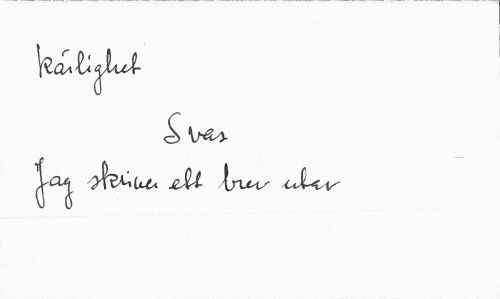 kärlighet
Svar
Jag skriver ett brev utav